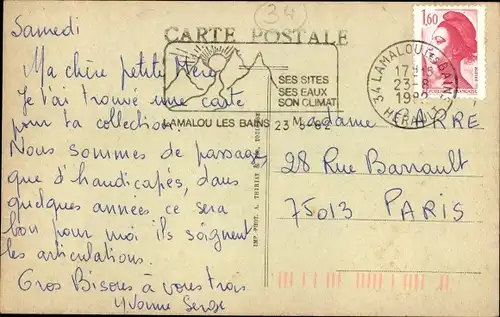 Samedi
34
CARTE POSTALE
Ma chère petite Mère
Je t'ai trouvé une carte
pour ta collection.
Nous sommes de passage
que d'handicapés, dans
quelques années ce sera
bon pour moi ils soignent
les articulations.
Gros Bisous à vous trois
Yvonne Serge
SES SITES
SES EAUX
SON CLIMAT
LAMALOU LES BAINS 23-8-82
34 LAMALOU LES BAINS
17H15
23-8
HERAULT
1,60
Madame
28 Rue Barrault
75013 PARIS